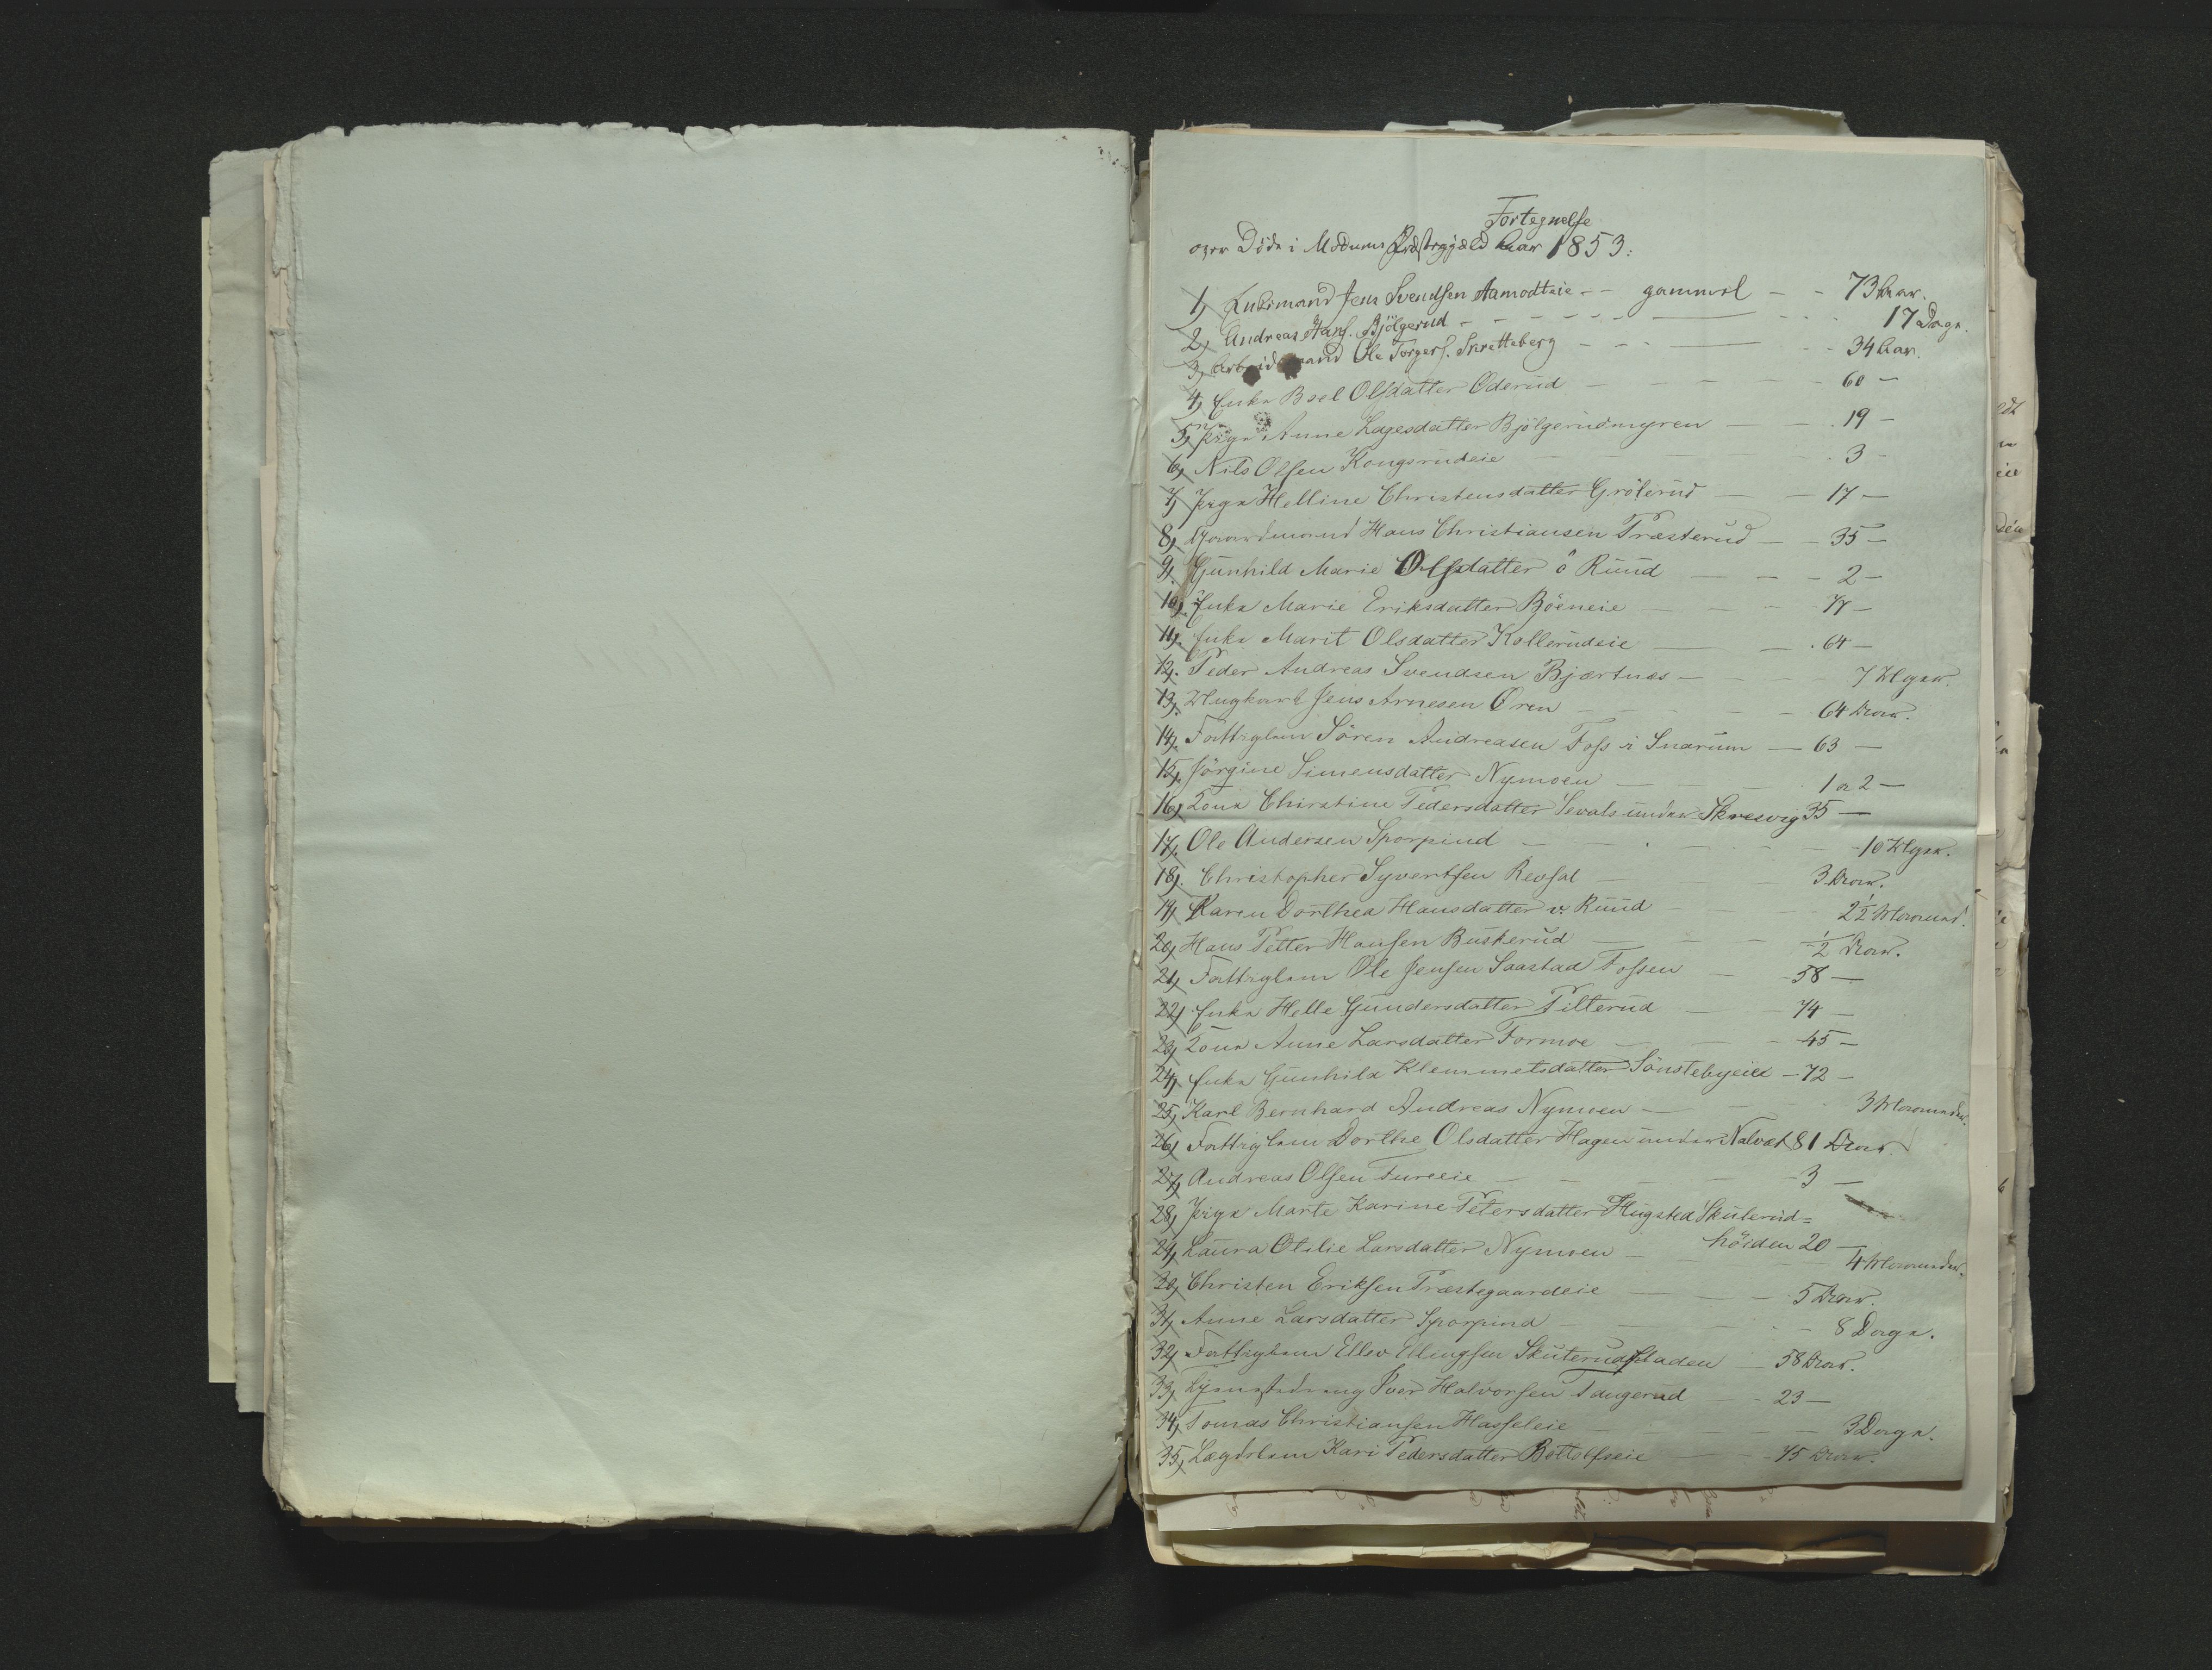 Fortegnelse
over Døde i Modums Præstegjæld Aar 1853.
1, Enkemand Jens Svendsen Aamodteie - - gammel - - 73 Aar.
2, Andreas Hans. Bjölgerud - - - 17 Dage.
3, Arbeidsmand Ole Torgers. Skretteberg - - - 34 Aar.
4, Enke Basel Olsdatter Oderud - - - 60 -
5, Pige Anne Lagesdatter Bjölgerudmyren - - 19 -
6, Nils Olsen Kongsrudeie - - 3 -
7, Pige Helline Christensdatter Grölerud - - 17 -
8, Gaardmand Hans Christiansen Præsterud - - 35 -
9, Gunhild Marie Olsdatter ö Ruud - - - 2 -
10, Enke Marie Eriksdatter Böeneie - - - 77 -
11, Enke Marit Olsdatter Kollerudeie - - 64 -
12, Peder Andreas Svendsen Bjærtnæs - - - 7 Uger.
13, Ungkarl Jens Arnesen Øren - - - 64 Aar.
14, Fattiglem Sören Andreasen Foss i Snarum - 63 -
15, Jörgine Simensdatter Nymoen - - - 1 a 2 -
16, Kone Chirstine Pedersdatter Sevals under Skresvig 35 -
17, Ole Andersen Sporpind - - - 10 Uger.
18, Christopher Syvertsen Revsal - - 3 Aar.
19, Karen Dorthea Hansdatter v. Ruud - - 2½ Maaned.
20, Hans Petter Hansen Buskerud - - - ½ Aar.
21, Fattiglem Ole Jensen Saastad Fossen - - 58 -
22, Enke Helle Gundersdatter Pilterud - - 74 -
23, Kone Anne Larsdatter Formoe - - - 45 -
24, Enke Gunhild Klemmetsdatter Sönstebyeie - 72 -
25, Karl Bernhard Andreas Nymoen - - - 3 Maaneder.
26, Fattiglem Dorthe Olsdatter Hagen under Nalvat 81 Aar.
27, Andreas Olsen Fureeie - - - 3 -
28, Pige Marte Karine Petersdatter Hugsted Skuterud=
höiden 20 -
29, Laura Otilie Larsdatter Nymoen - - - 4 Maaneder.
30, Christen Eriksen Præstegaardeie - - - 5 Aar.
31, Anne Larsdatter Sporpind - - - 8 Dage.
32, Fattiglem Ellev Ellingsen Skuterudfladen - 58 Aar.
33, Iver Halvorsen Tangerud - - 23 -
34, Tomas Christiansen Hasseleie - - - 3 Dage.
35, Lægdslem Kari Pedersdatter Bottolfseie - - 75 Aar.